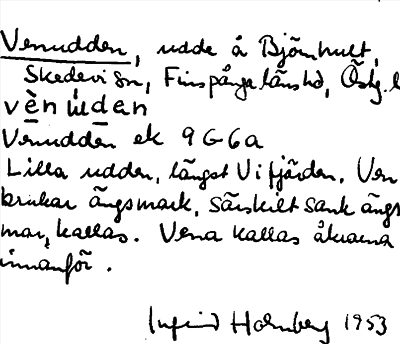 Venudden, udde å Björnhult,
Skedevi sn, Finspånga länshd, Östg. l
vènúdan
Venudden ek 9 G 6a
Lilla udden, längst V i fjärden. Ven
brukar ängsmark, särskilt sank ängs
mark, kallas. Vena kallas åkrarna
innanför.
Ingrid Holmberg 1953